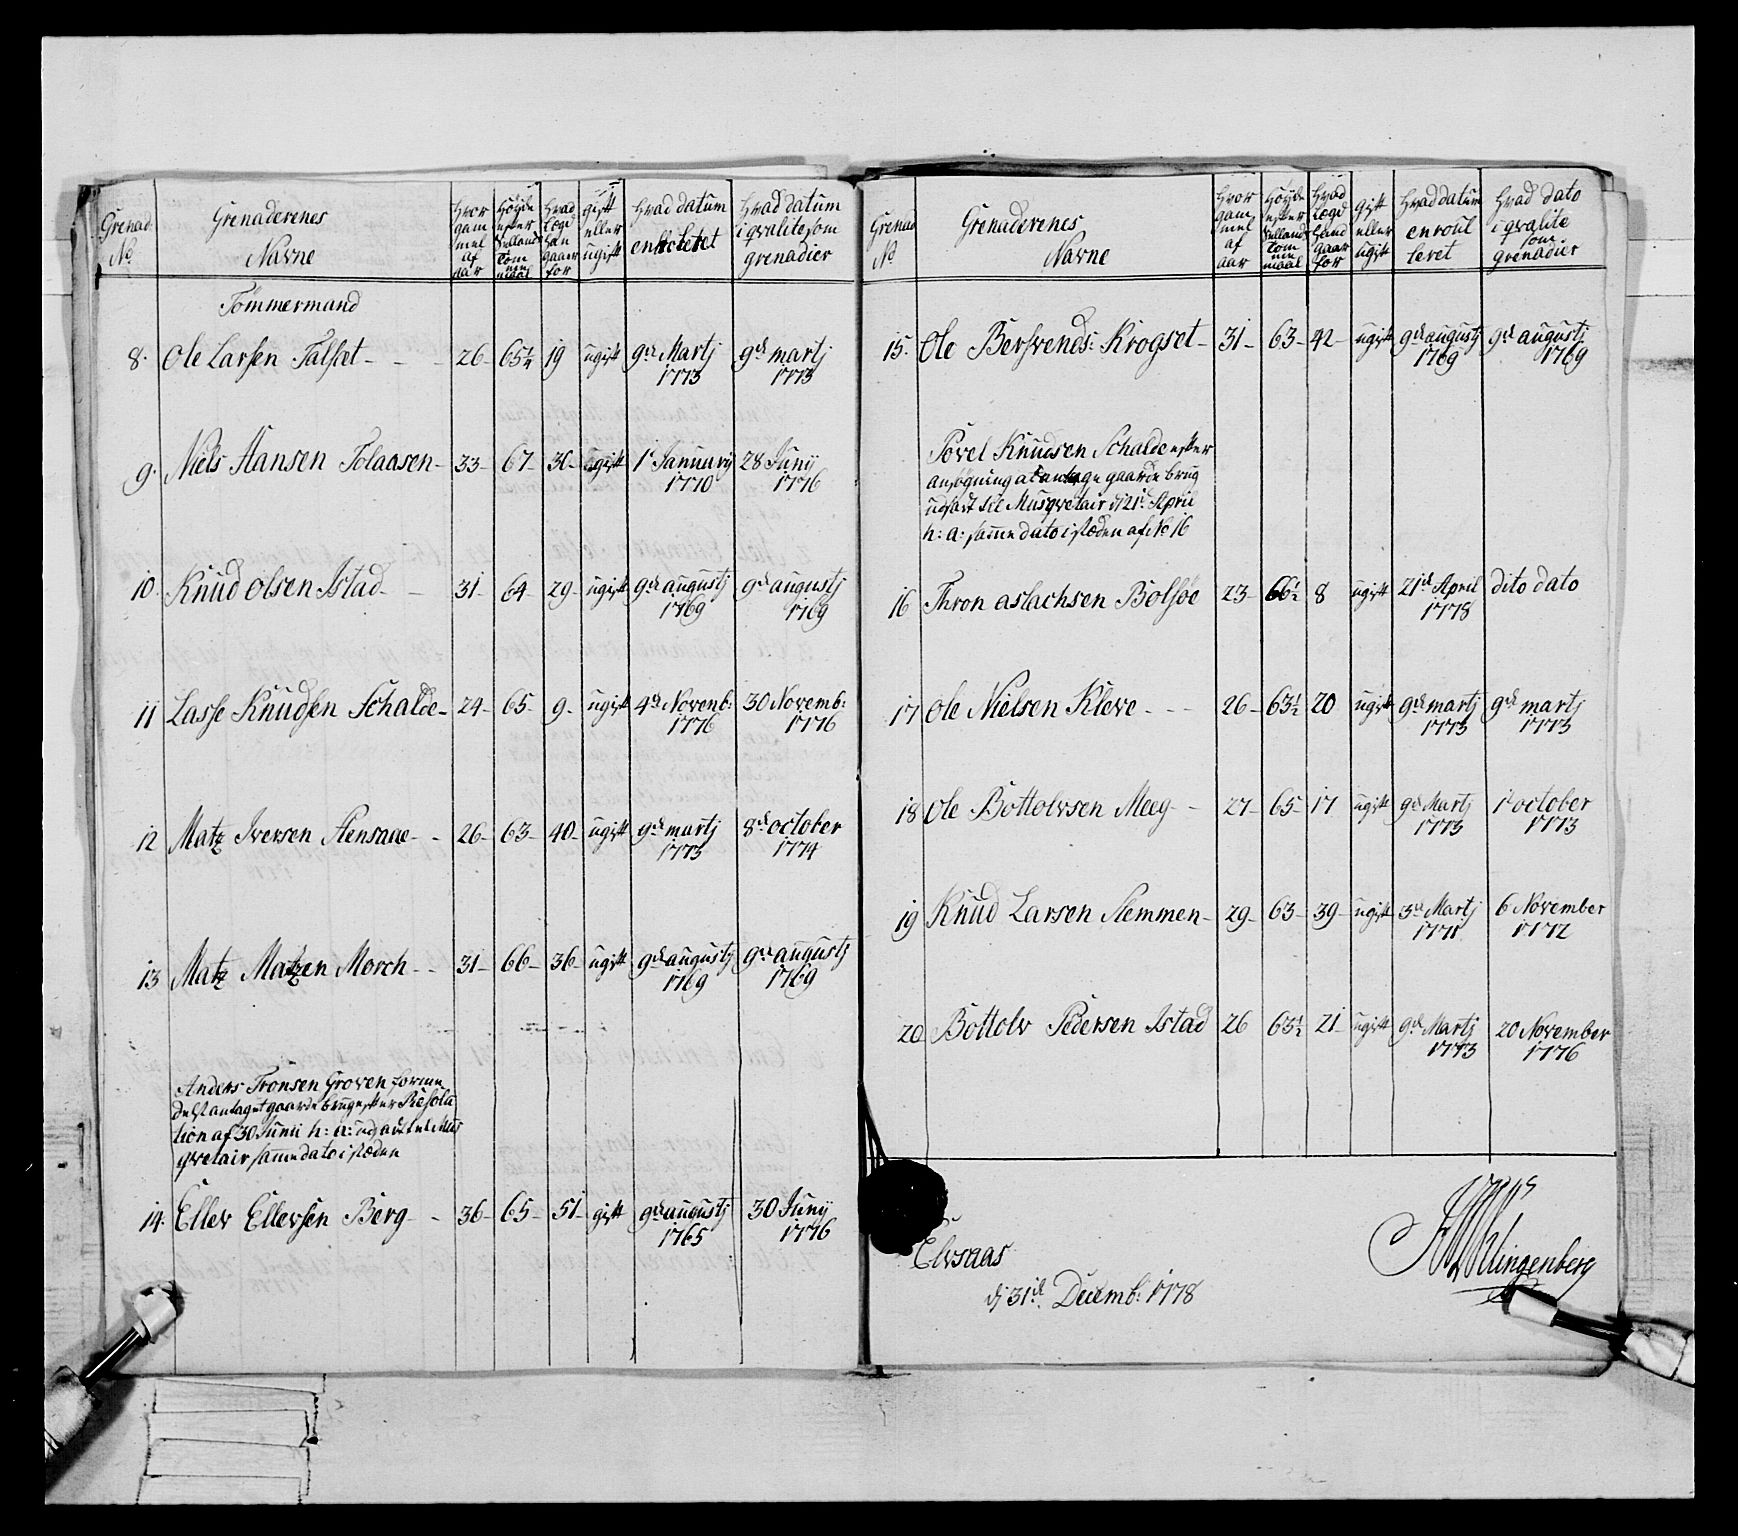 Grenad. No | Grenaderenes Navne | hvor gammel af aar | Höyde efter Sellands Tommemaal | hvad Lægd han gaar for | gift eller ugift | hvad datum enrolleret | hvad datum i qvalite som grenadier
Tömmermand
8. Ole Larsen Talset - - - 26 - 65 1/4 19 ugift 9de Martj 1773 9de martj 1773
9. Niels Hansen Tolaasen - 33 - 67 - 30 - ugift 1t January 1770 28 Juny 1776
10. Knud Olsen Istad - - 31 - 64 - 29 - ugift 9de augustj 1769 9de augustj 1769
11 Lasse Knudsen Schalde - 24 - 65 - 9 - ugift 4de Novenb: 1776 30 Novemb: 1776
12 Matz Iversen Stensaae - - 26 - 63 - 40 - ugift 9de martj 1773 8de october 1774
13 Matz Matzen Morch - - 31 - 66 - 36 - ugift 9de augustj 1769 9de augustj 1769
Anders Tronsen Groven formedelst antaget gaarde brug efter Resolu
tion af 30 Junii h: a: udsadt til Mus
qvetair samme dato i stæden
14. Ellev Ellevsen Berg - - 36 - 65 - 51 - gift 9de augustj 1765 30 Juny 1776
Grenad No | Grenaderenes Navne | hvor gammel af aar | Höyde efter Sellands Tommemaal | hvad Lægd hand gaar for | gift eller ugift | hvad datum enroulleret | hvad dato i qvalite som grenadier
15. Ole Bersvends: Krogset - 31 - 63 - 42 - ugift 9de augustj 1769 9de augustj 1769
Povel Knudsen Schalde efter
ansögning at antage gaarde brug
udsadt til Musqvetair d 21de April
h: a: samme dato i stæden af No 16
16 Thron aslachsen Bolsöe 23 - 66 1/2 8 ugift 21de April 1778 dito dato
17 Ole Nielsen Kleve - - - 26 - 63 1/2 20 ugift 9de martj 1773 9de martj 1773
18 Ole Bottolvsen Meeg - - 27 - 65 - 17 ugift 9de Martj 1773 1t october 1773
19 Knud Larsen Hemmen - 29 - 63 - 39 - ugift 3de Martj 1771 6 November 1772
20 Bottolv Pedersen Istad 26 63 1/2 21 ugift 9de Martj 1773 20 November 1776
Elvsaas
d 31de Decemb: 1778
Klingenberg